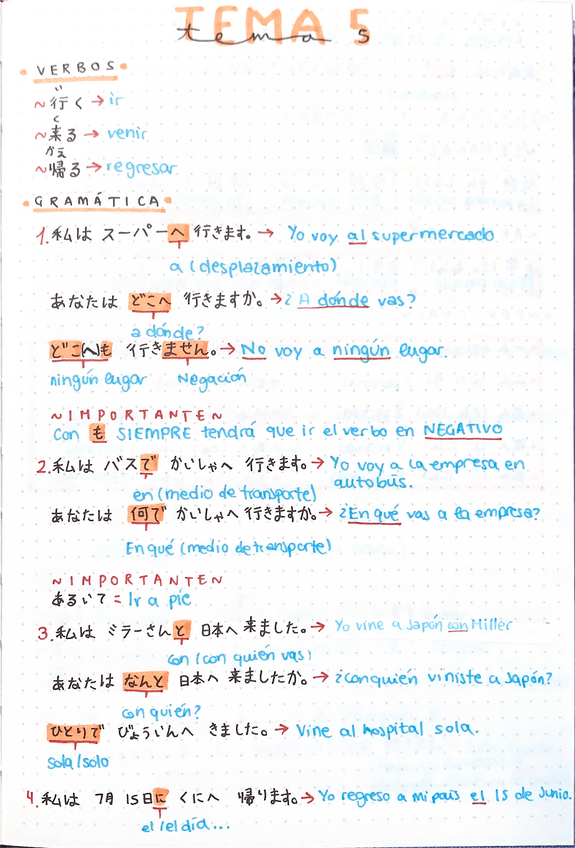 TEMA 5
tema 5
VERBOS
い
~行く→ir
く
~来る→venir
かえ
~帰る→regresar
GRAMÁTICA
1.私は スーパーへ 行きます。→ Yo voy al supermercado
a (desplazamiento)
あなたは どこへ 行きますか。→¿A dónde vas?
a dónde?
どこへも 行きません。→No voy a ningún lugar.
ningún lugar Negación
~IMPORTANTE~
Con も SIEMPRE tendrá que ir el verbo en NEGATIVO
2.私は バスで かいしゃへ 行きます。→Yo voy a la empresa en
autobús.
en (medio de transporte)
あなたは 何で かいしゃへ 行きますか。→¿En qué vas a la empresa?
En qué (medio de transporte)
~IMPORTANTE~
あるいて = Ir a pie
3.私は ミラーさんと 日本へ 来ました。→ Yo vine a Japón con Miller
con (con quién vas)
あなたは なんと 日本へ 来ましたか。→¿con quién viniste a Japón?
con quién?
ひとりで びょういんへ きました。→ Vine al hospital sola.
sola/solo
4.私は 7月 15日に くにへ 帰ります。→Yo regreso a mi país el 15 de Junio.
el/el día...